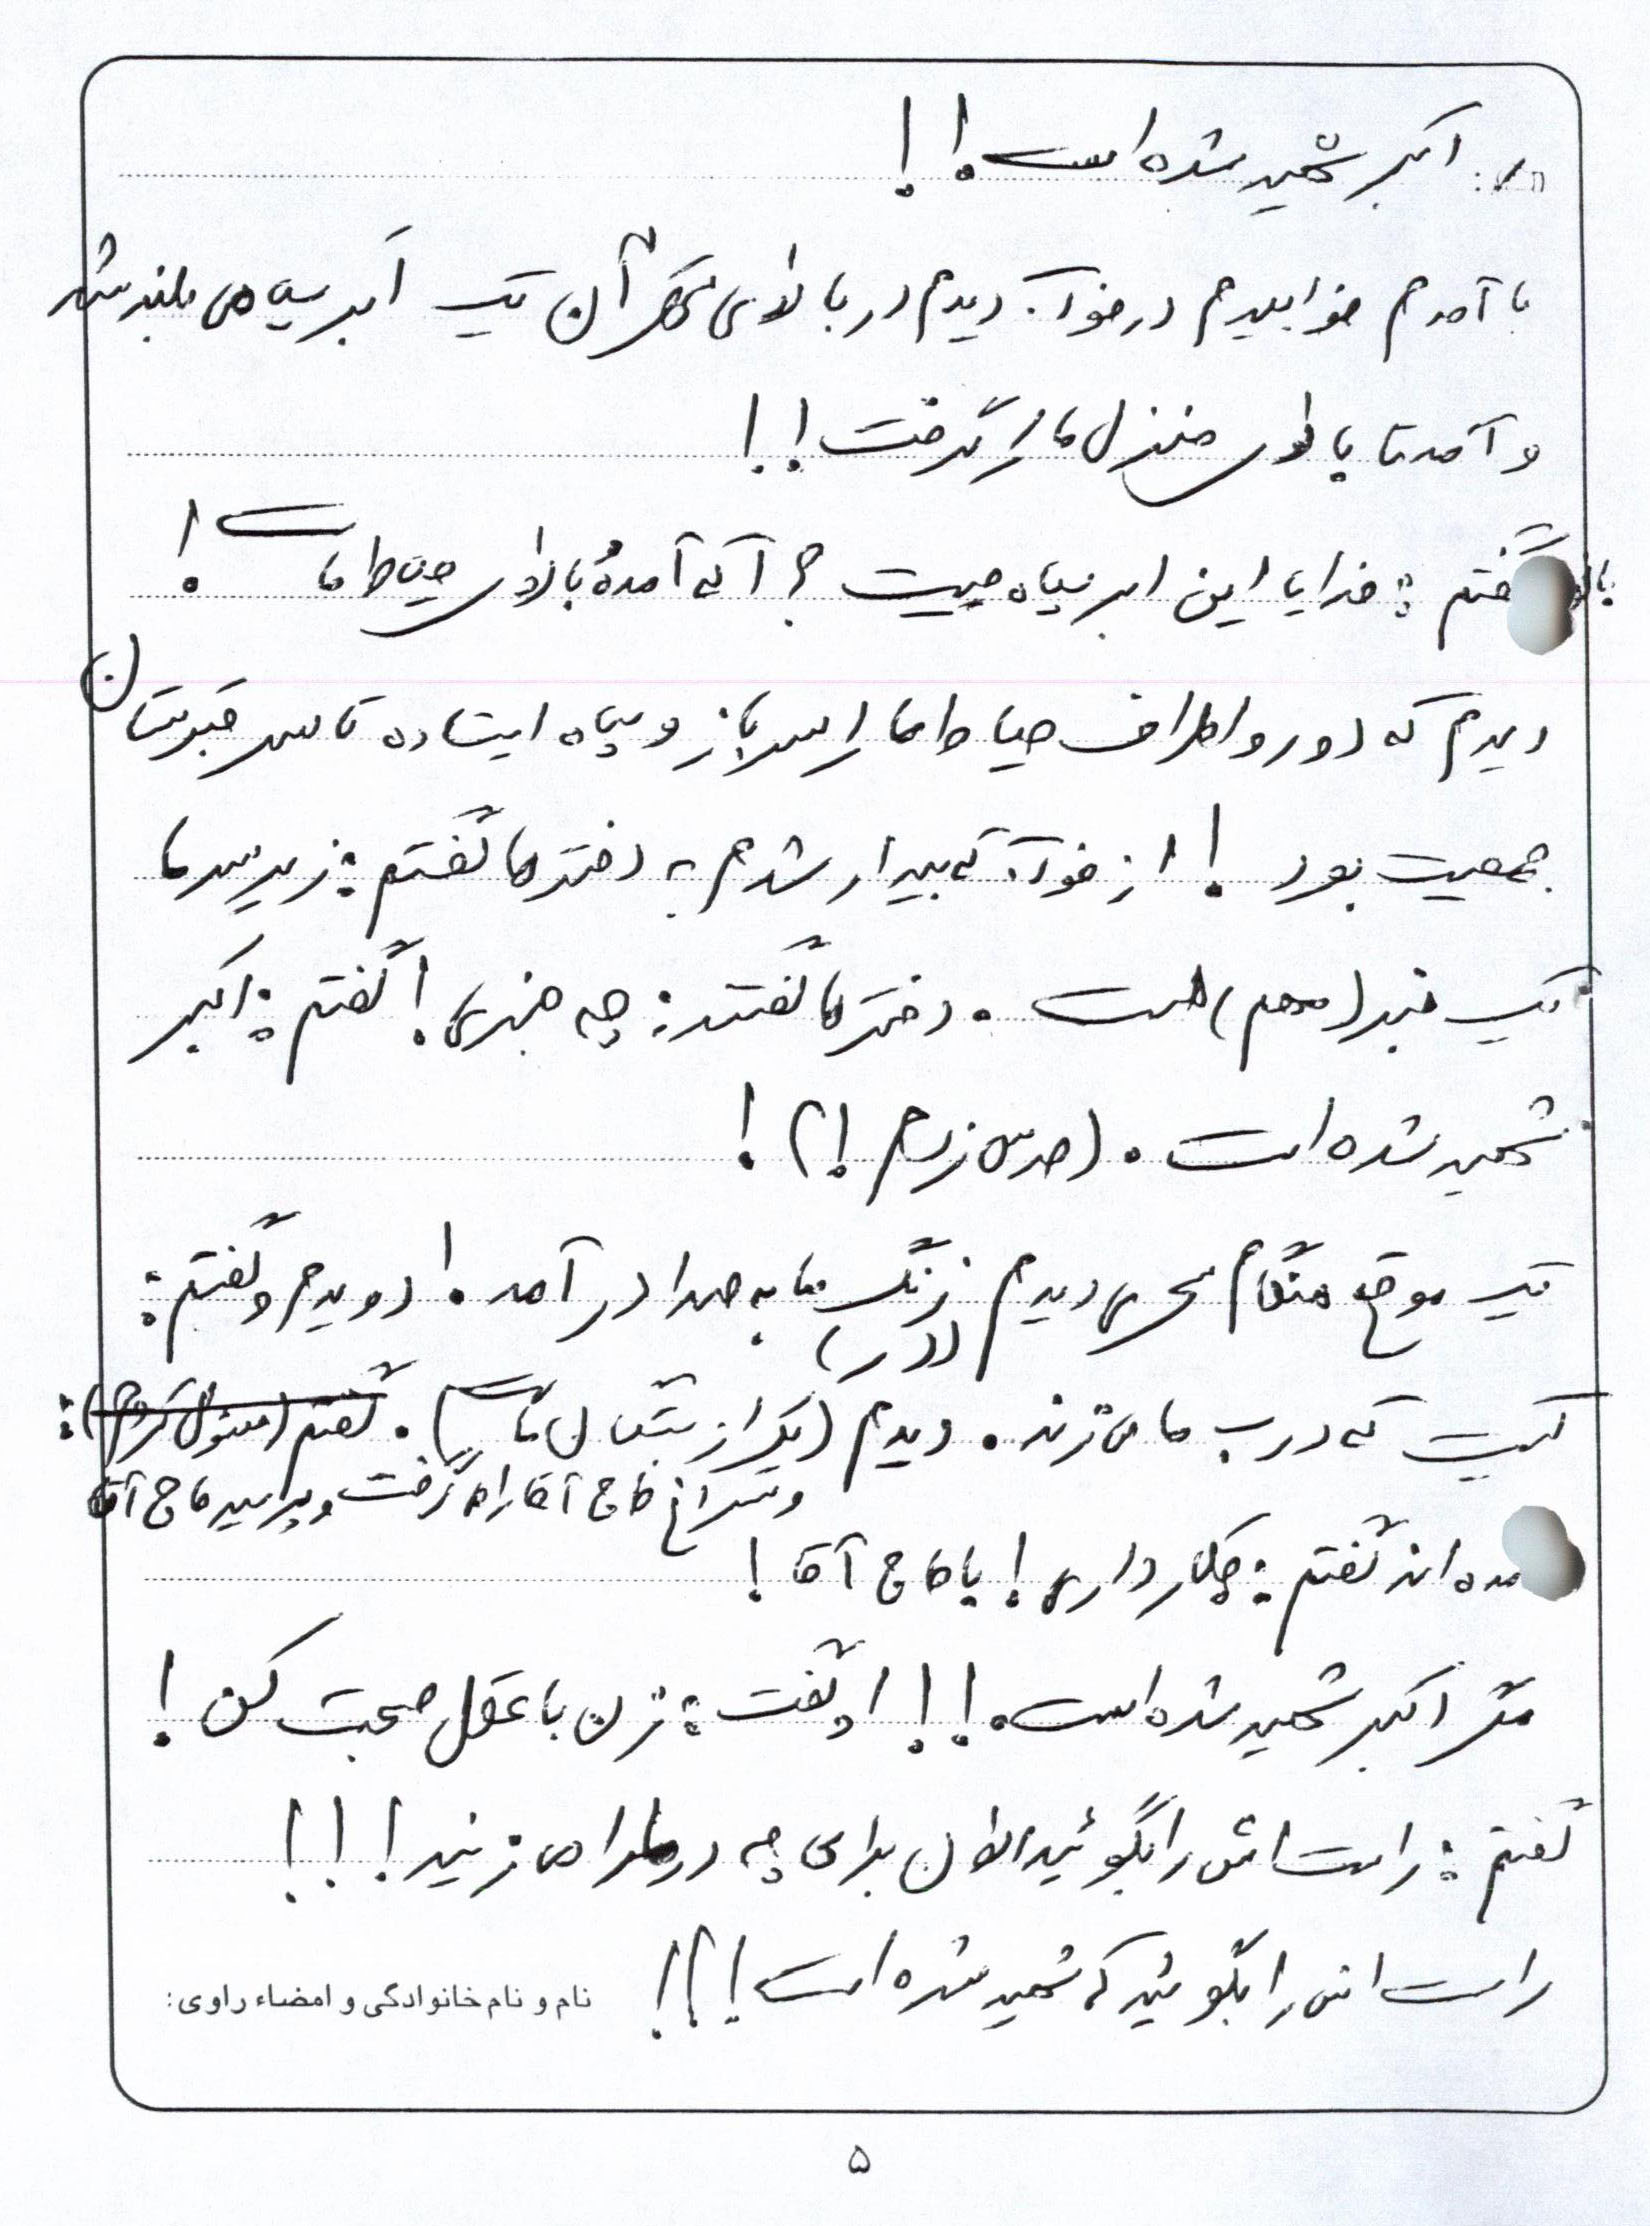 اکبر شهید شده است!!
تا آمدم خوابیدم در خواب دیدم در بالای آن یک ابر سیاهی بلند شد
و آمد تا بالای منزل ما را گرفت!!
گفتم: خدایا این ابر سیاه چیست؟ که آمده بالای حیاط ماست!
دیدم که دور و اطراف حیاط ما را سرباز و سپاه ایستاده تا سر قبرستان
جمعیت بود! از خواب که بیدار شدم به دخترها گفتم: زیر سر ما
یک خبر (مهم) هست. دخترها گفتند: چه خبری! گفتم: اکبر
شهید شده است. (حدس زدم!؟)!
یک موقع هنگام سحری دیدم زنگ ما به صدا در آمد! دویدم و گفتم:
(در)
کیست که درب ما می‌زند. دیدم (یکی از بستگان ماست). گفتم (مسئول گروه):
و سراغ حاج آقا را گرفت و پرسید حاج آقا
آمده‌اند گفتم: چکار داری! با حاج آقا!
مگر اکبر شهید شده است!! او گفت: زن با عقل صحبت کن!
گفتم: راست‌اش را بگوئید الان برای چه در ما را می‌زنید!!!
راست‌اش را بگوئید که شهید شده است!؟!
نام و نام خانوادگی و امضاء راوی:
۵